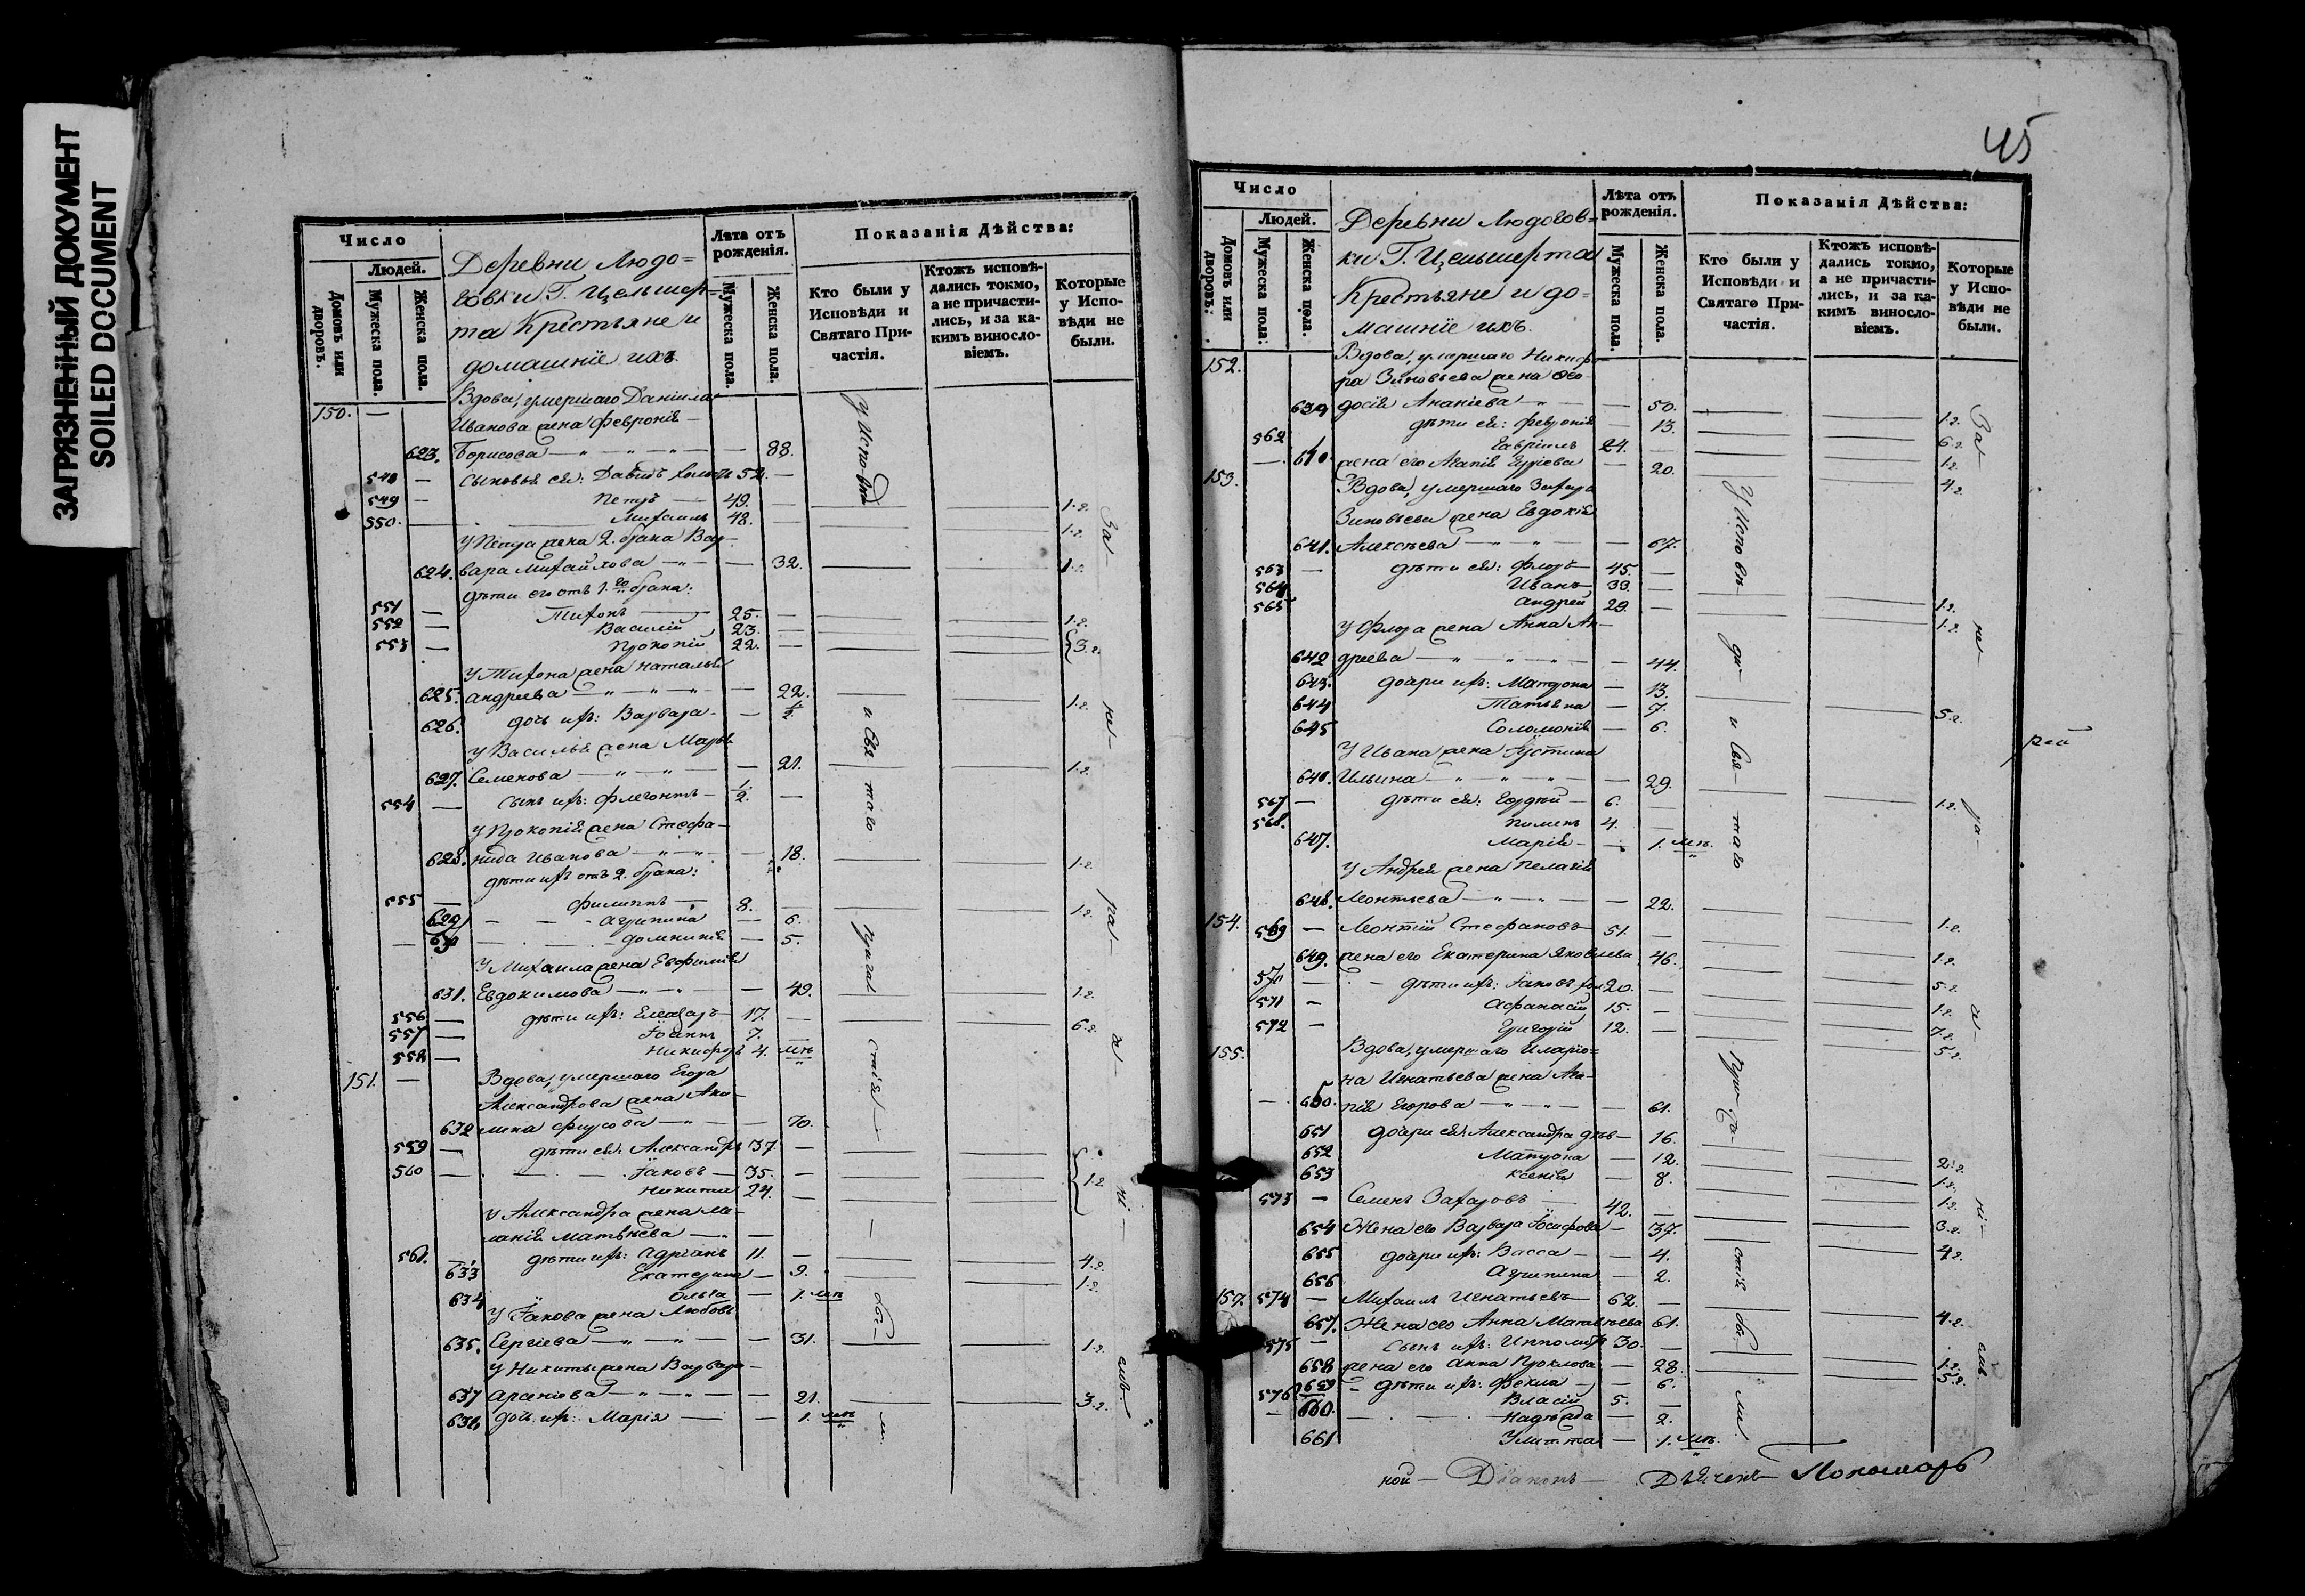 ЗАГРЯЗНЕННЫЙ ДОКУМЕНТ
SOILED DOCUMENT
Число
Людей.
Домовъ или дворовъ.
Мужеска пола.
Женска пола.
Деревни Людо=
говки Г. Цельшер=
та Крестьяне и
домашніе ихъ
Лѣта отъ рожденія.
Мужеска пола.
Женска пола.
Показанія Дѣйства:
Кто были у Исповѣди и Святаго Причастія.
Ктожъ исповѣдались токмо, а не причастились, и за какимъ винословіемъ.
Которые у Исповѣди не были.
150. — Вдова, умершаго Даніила
Иванова жена Февронія —
623. Борисова — 88.
548 — сыновья ея: Давидъ холостъ 52. —
549 — Петръ — 49. — 1.г.
550. — Михаилъ 48. — 1.г.
У Петра жена 2. брака Вар-
624. вара Михайлова — 32. 1.г.
дѣти его отъ 1.го брака:
551 — Тихонъ — 25. — 1.г.
552 — Василій 23. —
553 — Прокопій 22. — 3.г.
У Тихона жена Наталья
625. Андреева — 22. 1.г.
626. дочь ихъ: Варвара — ½.
У Василья жена Марья
627. Семенова — 21. 1.г.
554 — сынъ ихъ: Флегонтъ — ½. —
У Прокопія жена Стефа-
628. нида Иванова — 18. 1.г.
дѣти ихъ отъ 2. брака:
555 — Филиппъ — 8. 1.г.
629 — Агрипина — 6.
630 — Домникія — 5.
У Михаила жена Евфимія
631. Евдокимова — 49. 1.г.
556 — дѣти ихъ: Елеазаръ — 17. — 6.г.
557 — Іоаннъ 7. —
558 — Никифоръ 4. мѣ
151. — Вдова, умершаго Егора
Александрова жена Аки-
632 лина Фирсова — 70.
559 — дѣти ея: Александръ 37. —
560 — Іаковъ — 35. — 1.г.
Никита 24. —
У Александра жена Ме-
ланія Матвѣева —
561. — дѣти ихъ: Адріанъ 11. — 4.г.
633 Екатерина — 9. 1.г.
634 Ольга — 1. мѣ
У Іакова жена Любовь
635. Сергіева — 31. 1.г.
У Никиты жена Варвара —
637 — 21. 3.г.
638 дочь ихъ: Марія — 1. мѣ
У Испо-вѣ
и Свя
таго
Причас
стія
бы-
ли.
За-
не-
ра-
де-
ні-
емъ
45
Число
Людей.
Домовъ или дворовъ.
Мужеска пола.
Женска пола.
Деревни Людогов=
ки Г. Цельшерта
Крестьяне и до=
машніе ихъ.
Лѣта отъ рожденія.
Мужеска пола.
Женска пола.
Показанія Дѣйства:
Кто были у Исповѣди и Святаго Причастія.
Ктожъ исповѣдались токмо, а не причастились, и за какимъ винословіемъ.
Которые у Исповѣди не были.
152. Вдова, умершаго Никифо
ра Зиновьева жена Ѳео-
639 досія Ананіева — 50. 1.г.
дѣти ея: Февронія — 13. 6.г.
562 Гавріилъ 24. — 1.г.
640. жена его Агапія — 20. 4.г.
153. Вдова, умершаго Захара
Зиновьева жена Евдокія
641. Алексѣева — 67.
563 — дѣти ея: Флоръ 45. —
564 Иванъ 33. — 1.г.
565 Андрей 29. — 1.г.
У Флора жена Анна Ан-
642 дреева — 44.
643. дочери ихъ: Матрона — 13.
644 Татьяна — 7. 5.г.
645 Соломонія — 6.
У Ивана жена Іустина
646. Ильина — 29.
567 — дѣти ея: Гордѣй — 6. — 1.г.
568. Пименъ 4. —
647. Марія — 1. мѣ.
У Андрея жена Пелагія
648. Леонтьева — 22.
154. 569 — Леонтій Стефановъ 51. — 1.г.
649. жена его Екатерина Яковлева 46. 1.г.
570 — дѣти ихъ: Іаковъ хол 20. — 5.г.
571 — Афанасій 15. — 1.г.
572 — Григорій 12. — 7.г.
155. Вдова, умершаго Иларіо= 5.г.
на Игнатьева жена Ага-
650. пія Егорова — 61.
651 дочери ея: Александра дѣв — 16.
652 Матрона — 12. 2.г.
653 Ксенія — 8. 1.г.
573 — Семенъ Захаровъ 42. — 1.г.
654 Жена его Варвара Іосифова — 37. 3.г.
655 дочери ихъ: Васса — 4. 4.г.
656 Агрипина — 2.
157. 574 — Михаилъ Игнатьевъ 62. —
657. Жена его Анна Матвѣева 61. 4.г.
575 — Сынъ ихъ: Ипполитъ 30. —
658 жена его Анна Прохлова — 28. 1.г.
659 — дѣти ихъ: Фекла — 6. 5.г.
576 Власій 5. —
660. — Надѣжда — 2.
661 Улитта — 1. мѣ.
У Исповѣ
ди
и Свя-
таго
При-ча-
стія
бы-
ли
За-
не-
ра-
де-
ні-
емъ
рей
ной — Діаконъ — Дьячекъ — Пономарь